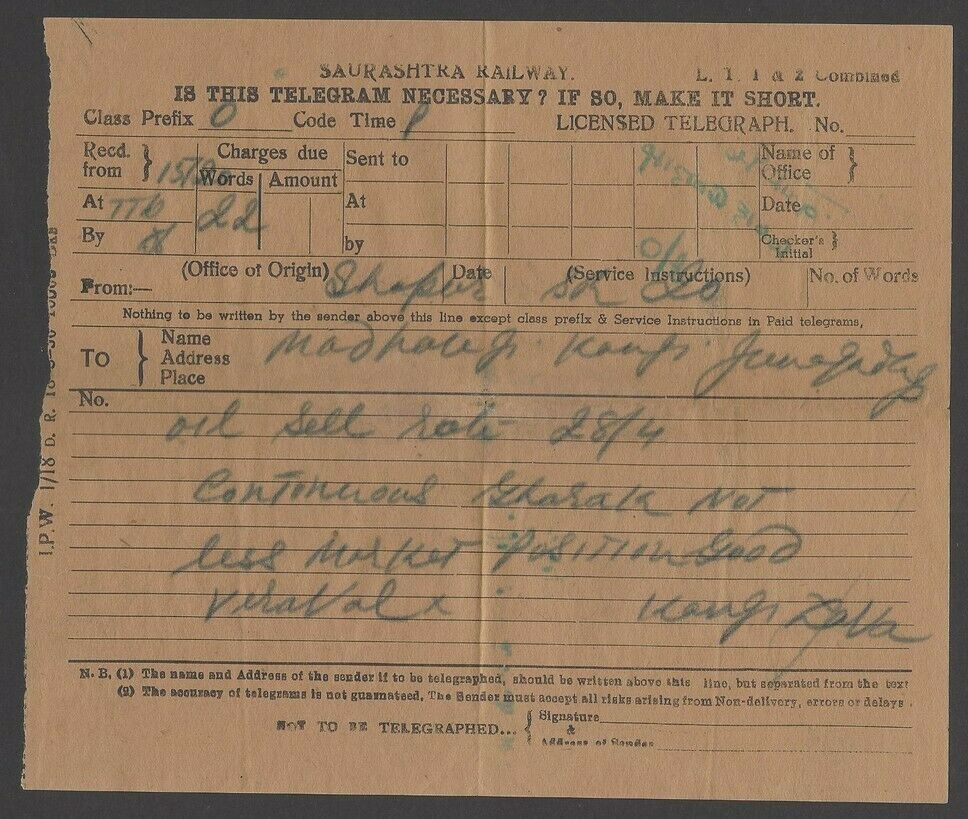 SAURASHTRA RAILWAY. L. T. 1 & 2 Combined
IS THIS TELEGRAM NECESSARY? IF SO, MAKE IT SHORT.
Class Prefix O Code Time P LICENSED TELEGRAPH. No.
Recd. from } 15/20 Charges due Sent to Name of Office }
Words Amount
At TTB 22 At Date
By by Checker's Initial }
(Office of Origin) Date (Service Instructions) No. of Words
From:— Shapur
Nothing to be written by the sender above this line except class prefix & Service Instructions in Paid telegrams,
TO } Name
Address
Place
Kanji
No.
oil sell rate 28/4
Continuous Gharak Not
less Market Position Good
Veraval x Kanji
N. B. (1) The name and Address of the sender if to be telegraphed, should be written above this line, but separated from the text
(2) The accuracy of telegrams is not guaranteed, The Sender must accept all risks arising from Non-delivery, errors or delays.
NOT TO BE TELEGRAPHED... { Signature
&
Address of Sender
I.P.W. 1/18 D. R.